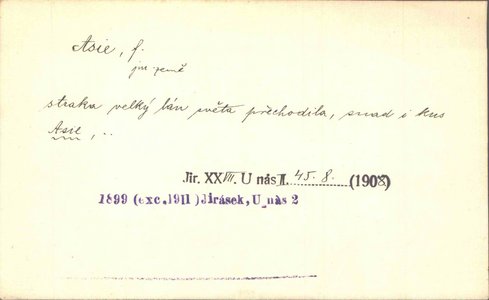 Asie, f.
jm. země
straka velký lán světa přechodila, snad i kus
Asie, ..
Jir. XXVII. U nás II. 45. 8. (1903)
1899 (exc. 1911) Jirásek, U nás 2